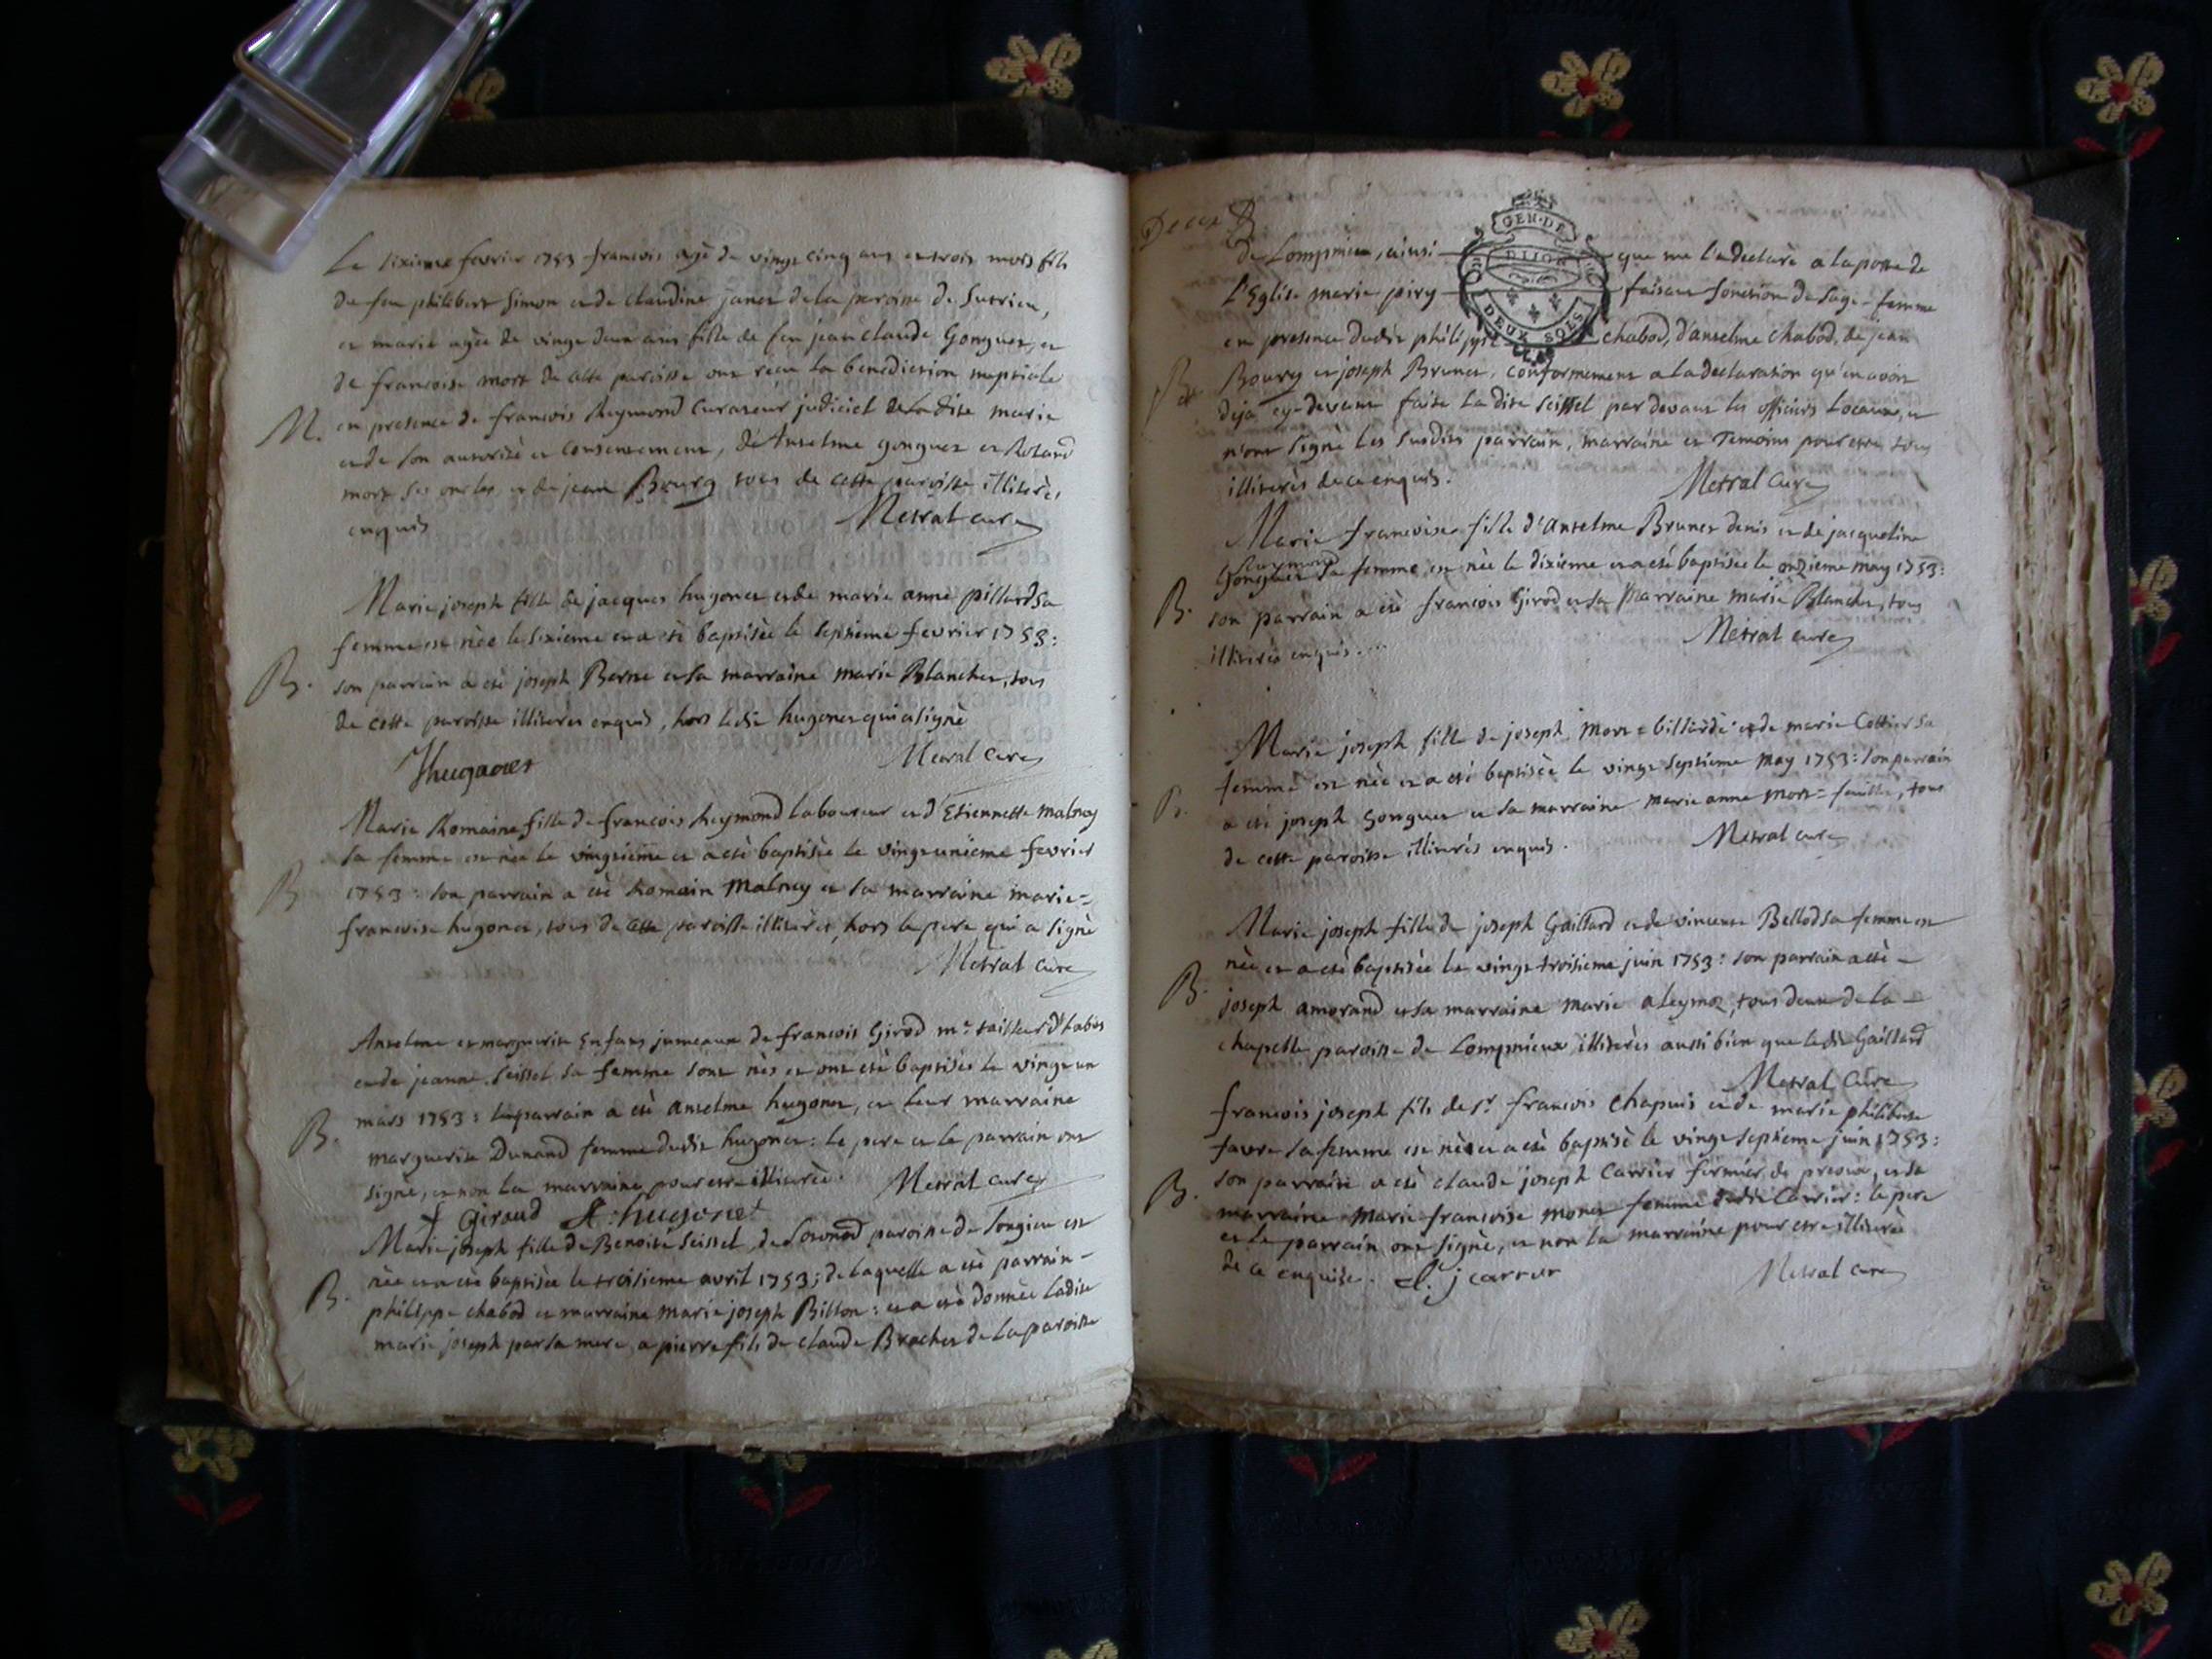 Le sixieme fevrier 1753 francois agé de vingt cinq ans et trois mois fils
de feu philibert Simon et de claudine janet de la paroisse de Sutrieu,
et marie agée de vingt deux ans fille de feu jean claude Gonguet, et
de francoise mort de cette paroisse ont reçu la benediction nuptiale
M. en presence de francois Reymond curateur judiciel de la dite marie
et de son autorité et consentement, de Anselme gonguet et
mort ses oncles, et de jean Bourg tous de cette paroisse illiterés
enquis Metral curé
Marie joseph fille de jacques hugonet et de marie anne pillard sa
femme est née le sixieme et a été baptisée le septieme fevrier 1753:
B. son parrain a été joseph Berne et sa marraine marie Blanchet, tous
de cette paroisse illiterés enquis, hors le dit hugonet qui a signé
Jhugonet Metral curé
Marie Romaine fille de francois Reymond laboureur et d'Etiennette malney
sa femme est née le vingtieme et a été baptisée le vingt unieme fevrier
B 1753: son parrain a été Romain Malney et sa marraine marie=
francoise hugonet, tous de cette paroisse illiterés, hors le pere qui a signé
Metral curé
Anselme et marguerite Enfans jumeaux de francois Girod me tailleur d'habis
et de jeanne Seissel sa femme sont nés et ont été baptisés le vingt un
B. mars 1753: leur parrain a été anselme hugonet, et leur marraine
marguerite Dunand femme dudit hugonet: le pere et le parrain ont
signé, et non la marraine pour etre illiterée. Metral curé
f Giraud A: hugonet
Marie joseph fille de Benoite Seissel, de paroisse de Songieu est
B. née et a été baptisée le troisieme avril 1753; de laquelle a été parrain-
philippe chabod et marraine marie joseph Billon: et a été donnée ladite
marie joseph par sa mere, a pierre fils de claude Brachet de la paroisse
GEN. DE
DIJON
DEUX SOLS
de Lompnieu, ainsi que me l'a declaré a la porte de
L'Eglise marie pivy faisant fonction de sage-femme
en presence dudit philippe chabod, d'anselme chabod, de jean
Bourg et joseph Brunet, conformement a la declaration qu'en avoit
deja cy-devant faite La dite Seissel par devant les officiers Locaux, et
n'ont signé Les susdits parrain, marraine et Temoins pour etre tous
illiterés de ce enquis. Metral curé
Marie francoise fille d'Anselme Brunet denis et de jacqueline
Reymond
Gonguet sa femme est née le dixieme et a été baptisée le onzieme may 1753:
B. son parrain a été francois Girod et sa Marraine marie Blanchet, tous
illiterés enquis.... Metral curé
Marie joseph fille de joseph Mort=billarde et de marie Cottier sa
femme est née et a été baptisée le vingt septieme may 1753: son parrain
B. a été joseph Gonguet et sa marraine marie anne mort=, tous
de cette paroisse illiterés enquis. Metral curé
Marie joseph fille de joseph Gaillard et de vincente Bellod sa femme est
née et a été baptisée le vingt troisieme juin 1753: son parrain a été -
B. joseph amorand et sa marraine marie aleymoz, tous deux de la -
chapelle paroisse de Lompnieux, illiterés aussi bien que le dit Gaillard
Metral curé
francois joseph fils de sr. francois Chapuis et de marie philiberte
favre sa femme est né et a été baptisé le vingt septieme juin 1753:
B. son parrain a été claude joseph Carrier fermier de, et sa
marraine Marie francoise monet femme dudit Carrier: le pere
et le parrain ont signé, et non la marraine pour etre illiterée
de ce enquise. C. j carrier Metral curé